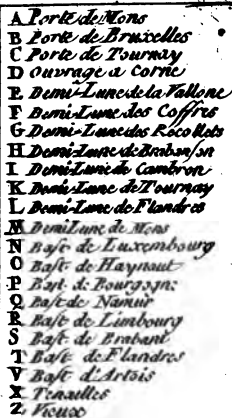 A Porte de Mons
B Porte de Bruxelles
C Porte de Tournay
D Ouvrage a Corne
E Demi-Lune de la Vallone
F Demi-Lune des Coffres
G Demi-Lune des Recollets
H Demi-Lune de Brabanson
I Demi-Lune de Cambron
K Demi-Lune de Tournay
L Demi-Lune de Flandres
M Demi Lune de Mons
N Bast. de Luxembourg
O Bast. de Haynaut
P Bast. de Bourgogne
Q Bast. de Namur
R Bast. de Limbourg
S Bast. de Brabant
T Bast. de Flandres
V Bast. d'Artois
X Tenailles
Z Vieux